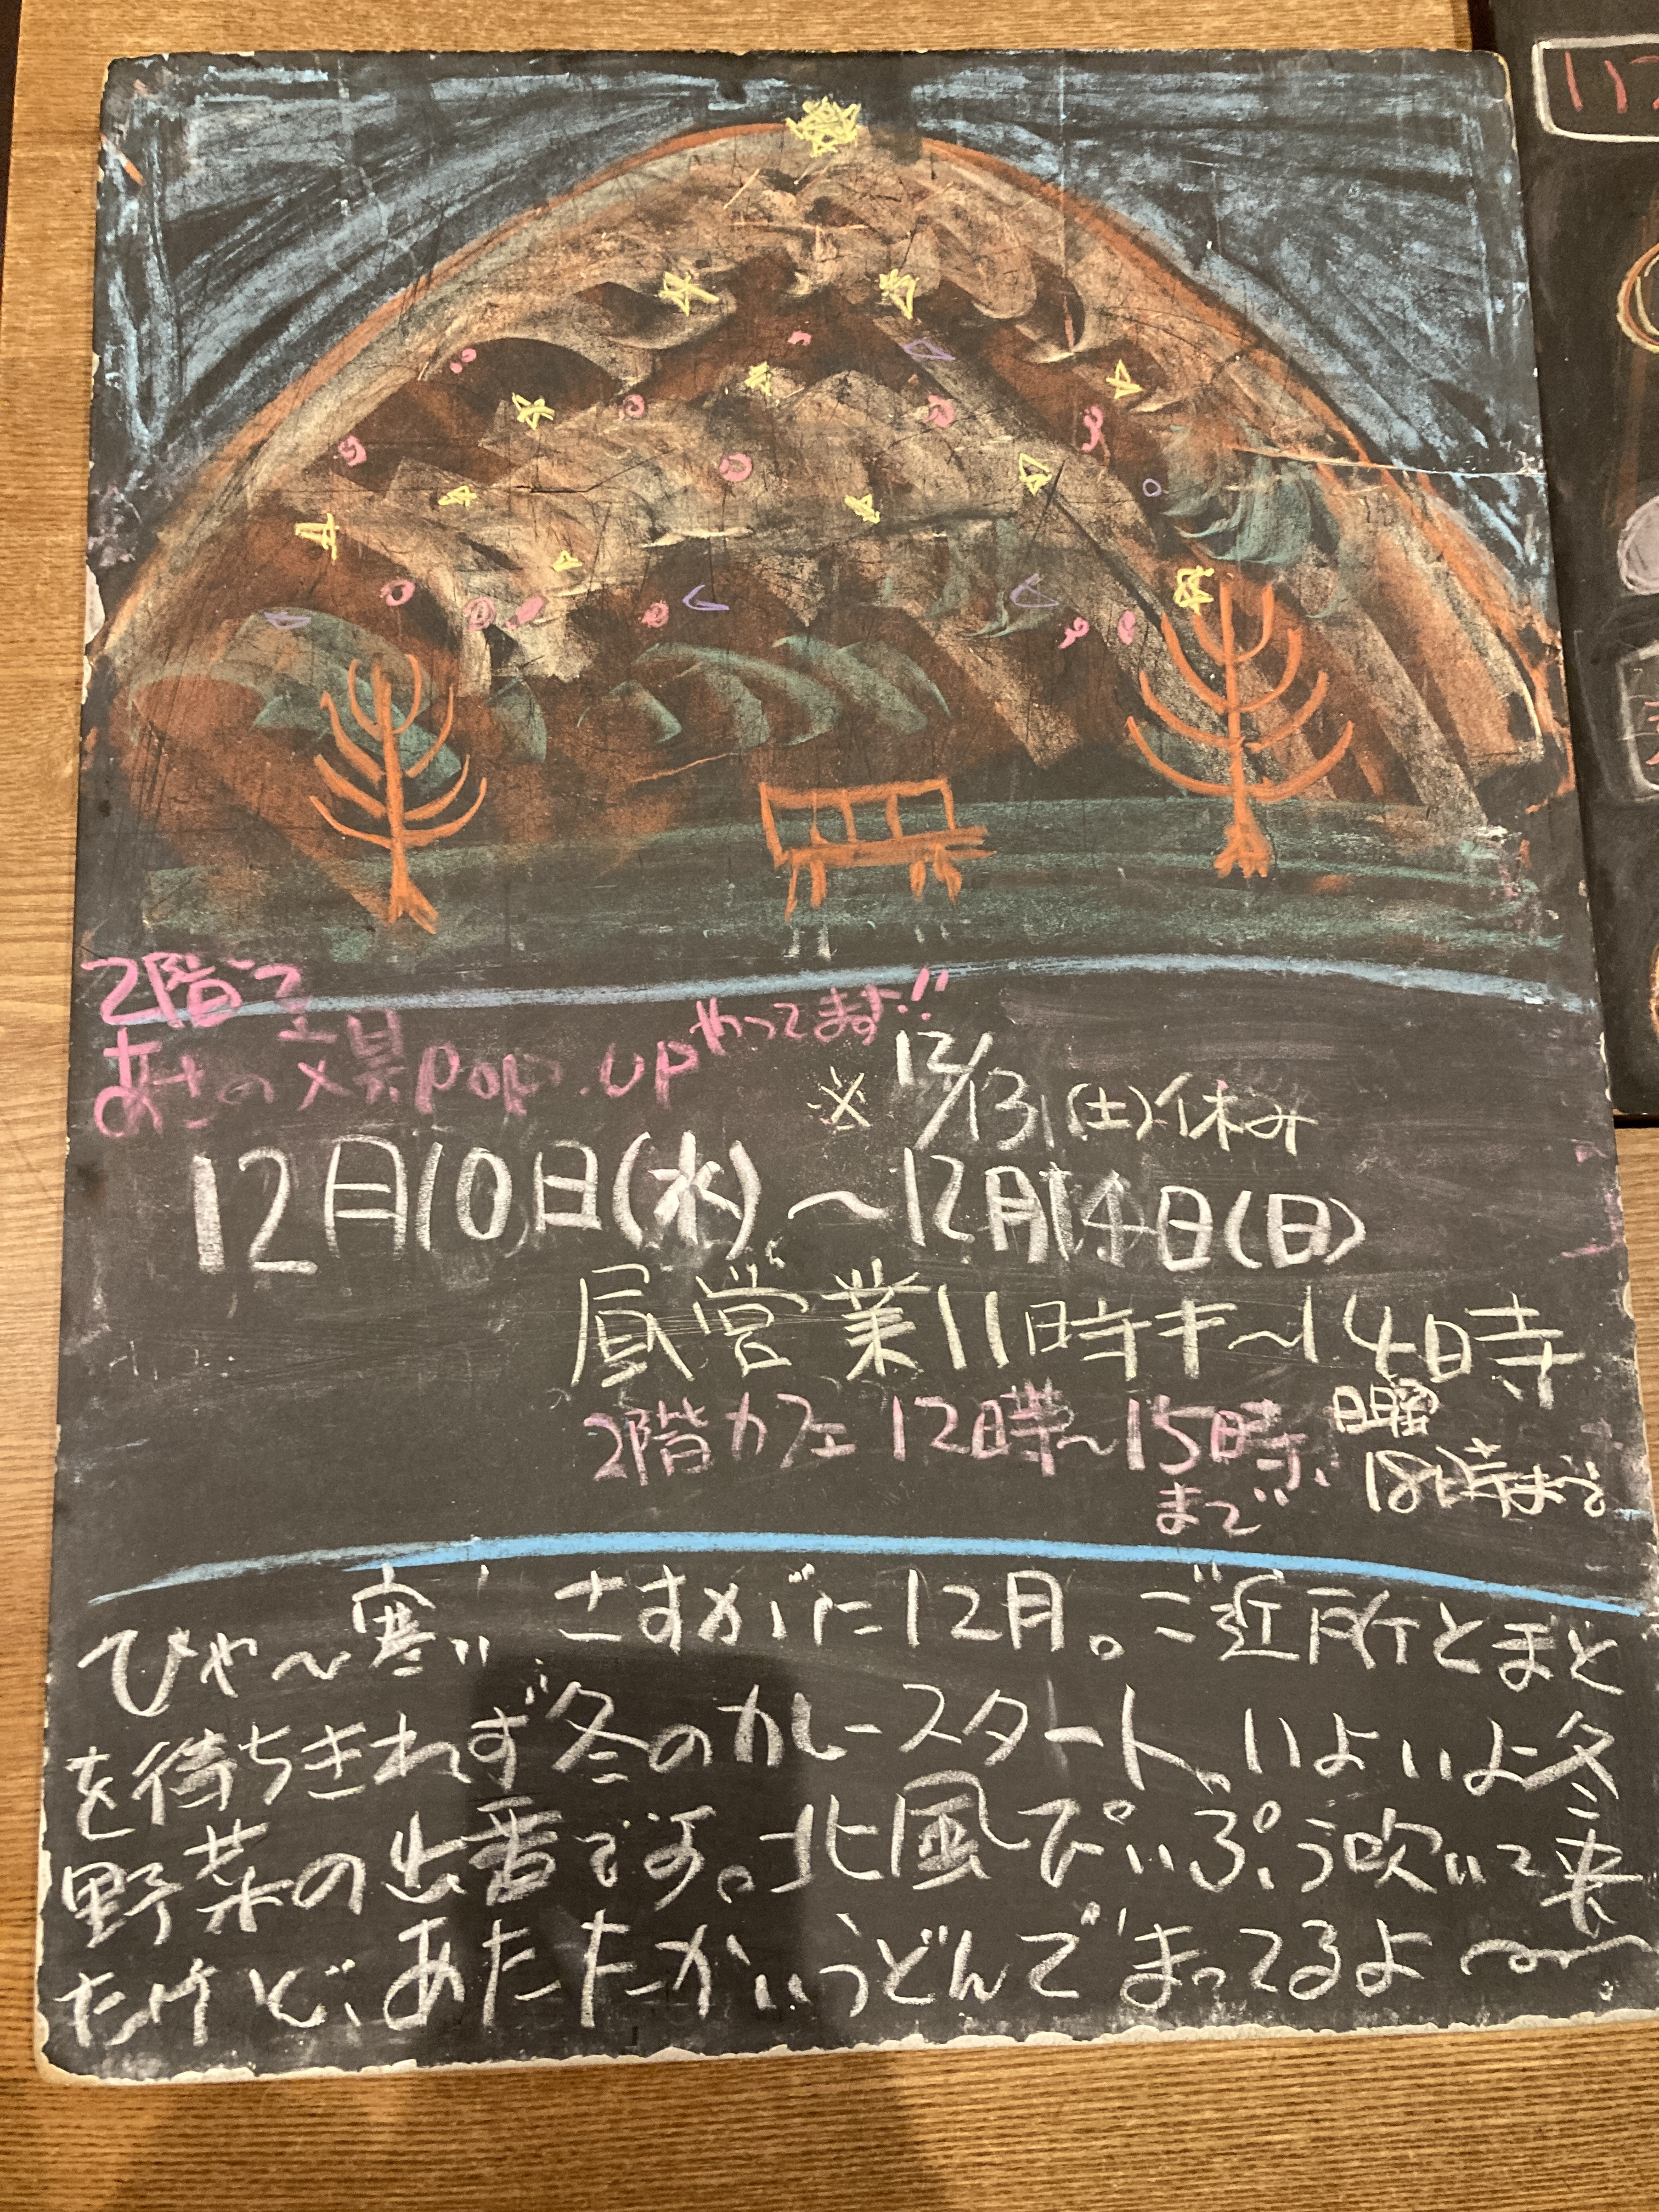 2階で
あさの文具POP.UPやってます!!
※12/13(土)休み
12月10日(水)〜12月14日(日)
昼営業11時半〜14時
2階カフェ12時〜15時まで
日曜18時まで
ひゃ〜寒い さすがに12月。ご近所とまと
を待ちきれず冬のカレースタート。いよいよ冬
野菜の出番です。北風ぴいぷう吹いて来
たけど、あたたかいうどんでまってるよ〜